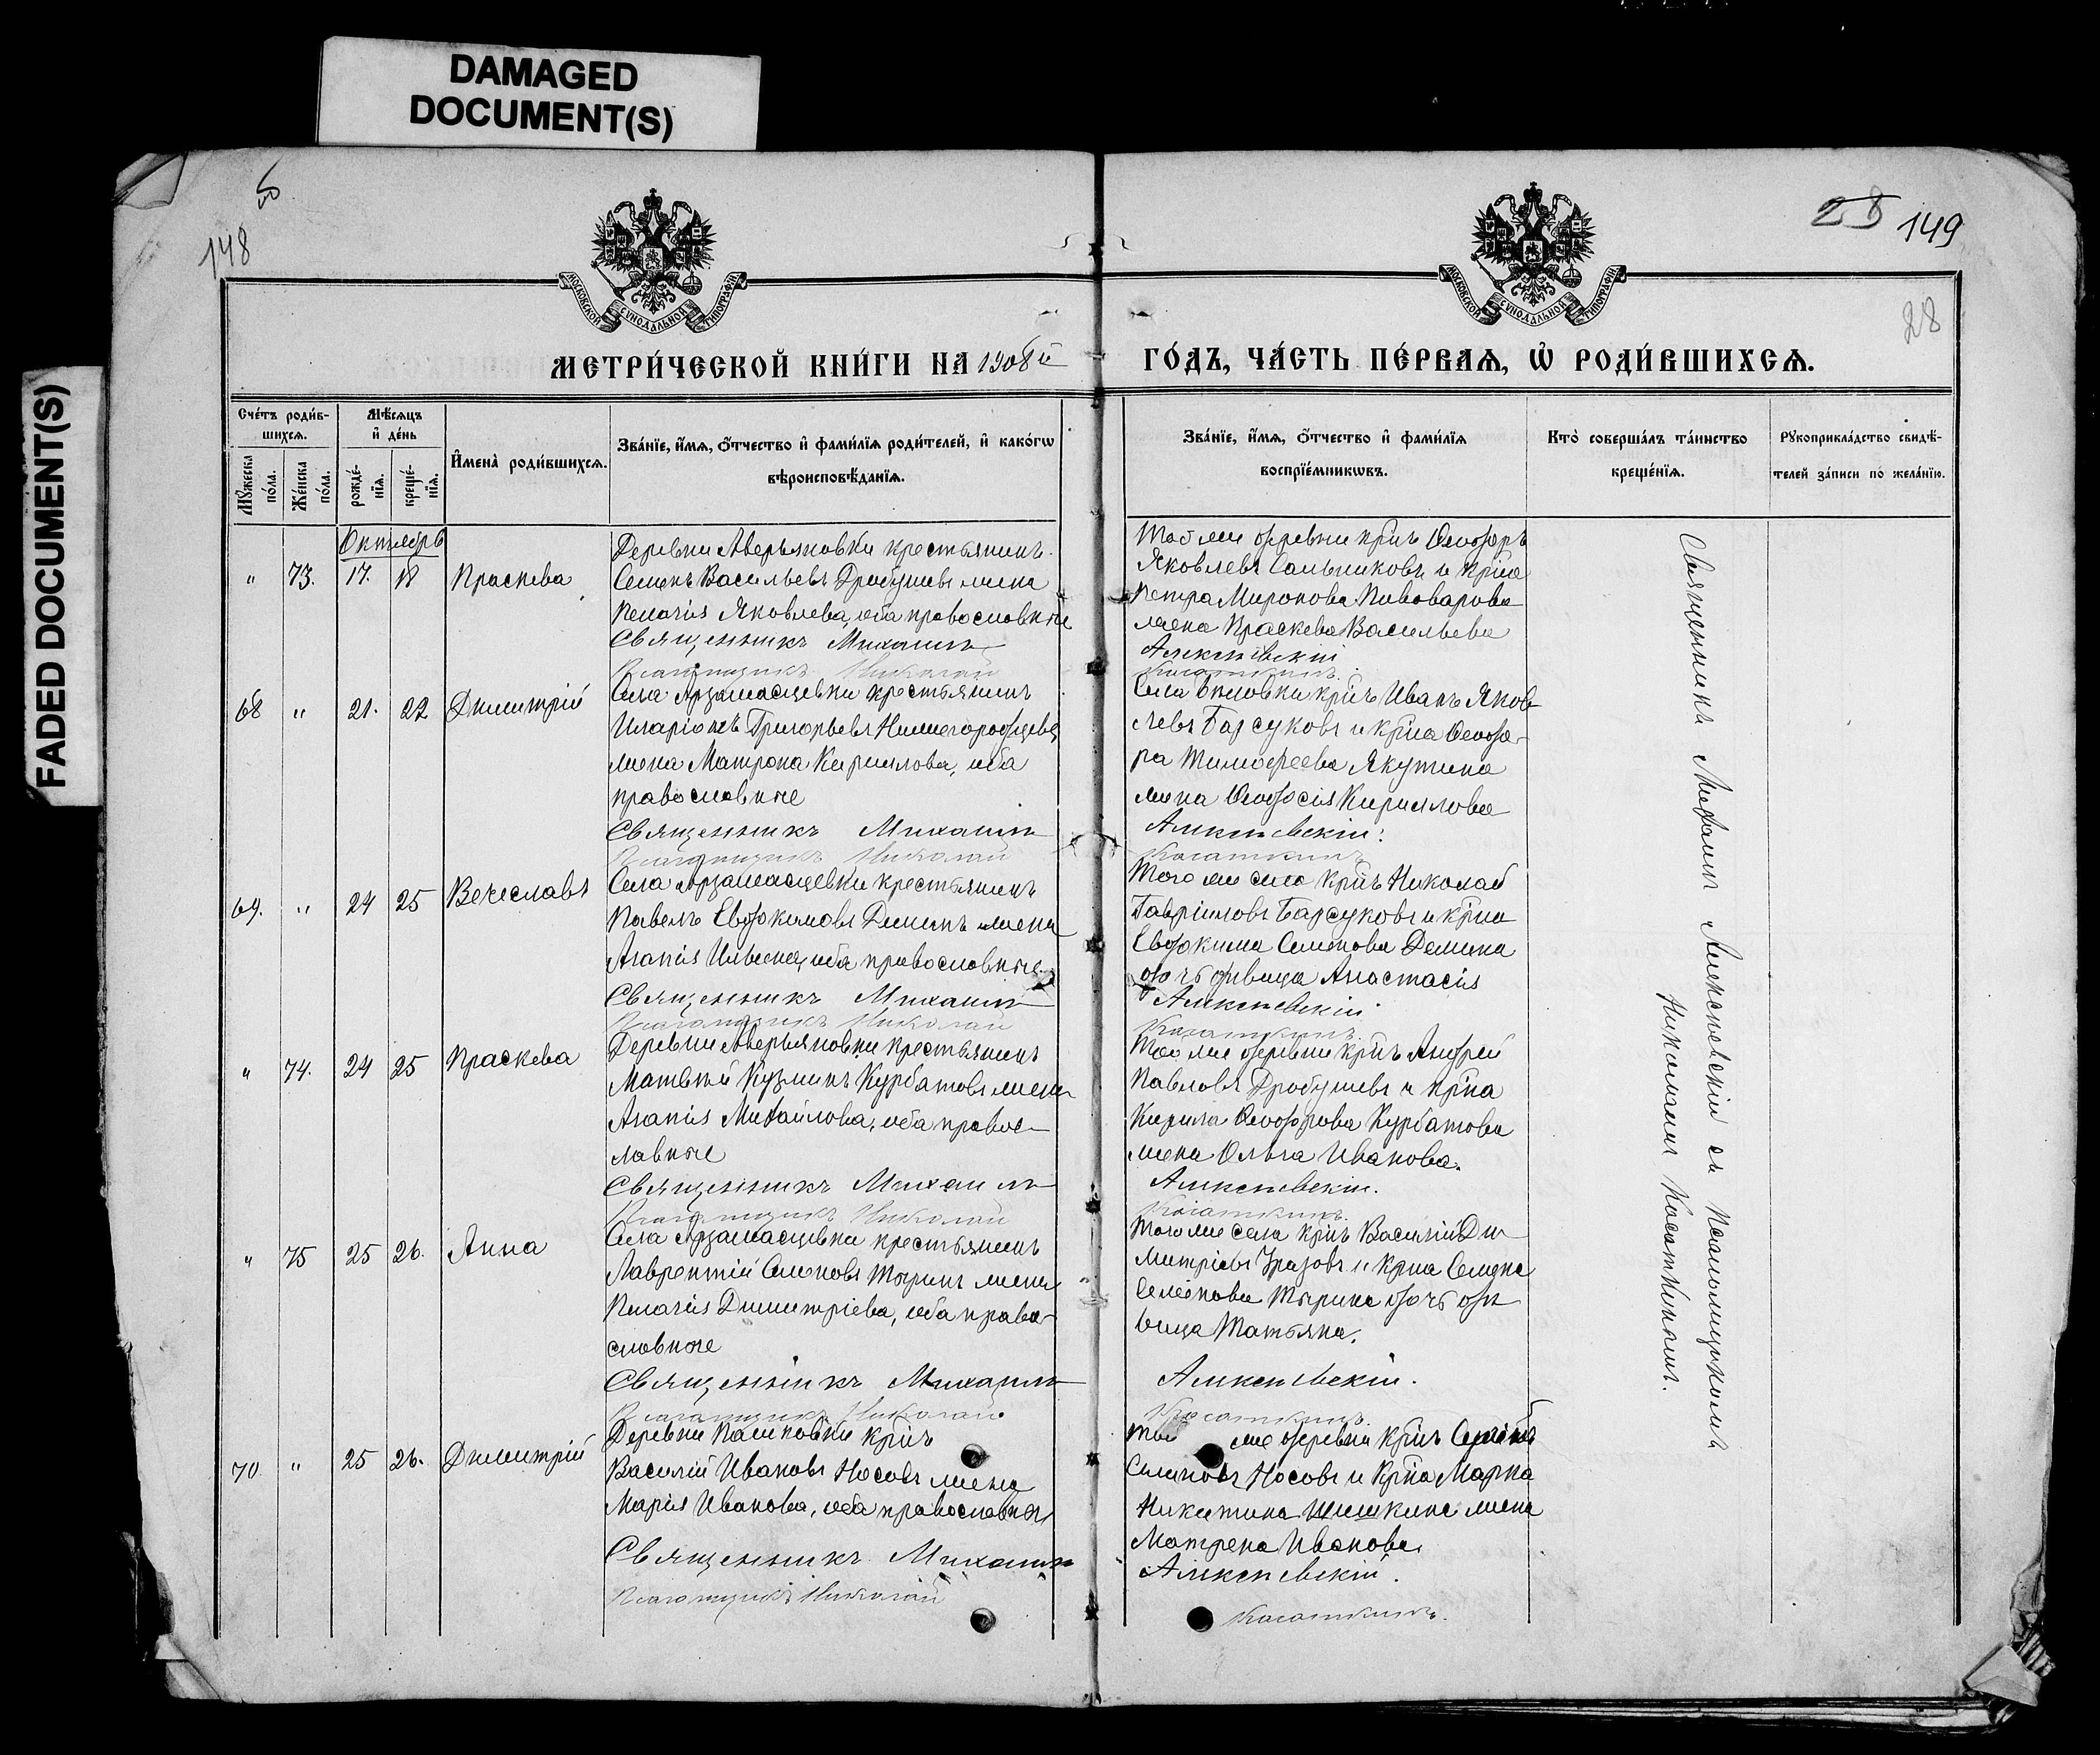 DAMAGED
DOCUMENT(S)
FADED DOCUMENT(S)
148
28 149
28
МОСКОВСКОЙ СѴНОДАЛЬНОЙ ТИПОГРАФІИ
МОСКОВСКОЙ СѴНОДАЛЬНОЙ ТИПОГРАФІИ
МЕТРИ́ЧЕСКОЙ КНИ́ГИ НА 1908й
ГО́ДЪ, ЧА́СТЬ ПЕ́РВАѦ, Ѡ РОДИ́ВШИХСѦ.
Сче́тъ роди́в-
шихсѧ.
Мꙋ́жеска
по́ла.
Же́нска
по́ла.
Мѣ́сѧцъ
и҆ де́нь
рожде́-
нїѧ.
креще́-
нїѧ.
И҆мена̀ роди́вшихсѧ.
Зва́нїе, и҆́мѧ, ѻ҆́тчество и҆ фами́лїѧ роди́телей, и҆ како́гѡ
вѣроисповѣ́данїѧ.
Зва́нїе, и҆́мѧ, ѻ҆́тчество и҆ фами́лїѧ
воспрїе́мникѡвъ.
Кто̀ соверша́лъ та́инство
креще́нїѧ.
Рꙋкоприкла́дство свидѣ́-
телей за́писи по жела́нїю.
Октябрь
" 73. 17. 18 Праскева
Деревни Аверьяновки крестьянинъ
Семенъ Васильевъ Дробушевъ жена
Пелагія Яковлева, оба православные
Священникъ Михаилъ
Псаломщикъ Николай
Той же деревни кр̃нъ Ѳеодоръ
Яковлевъ Сальниковъ и кр̃на
Петра Миронова Пивоварова
жена Праскева Васильева
Алексѣевскій
Касаткинъ.
68 " 21. 22 Димитрій
Села Арзамасцевки крестьянинъ
Иларіонъ Григорьевъ Нижегородцевъ
жена Матрона Кириллова, оба
православные
Священникъ Михаилъ
Псаломщикъ Николай
кр̃нъ Иванъ Яков-
левъ Барсуковъ и кр̃на Ѳеодо-
ра Тимофеева Якутина
жена Ѳеодосія Кириллова
Алексѣевскій.
Касаткинъ
69. " 24 25 Вечеславъ
Села Арзамасцевки крестьянинъ
Павелъ Евдокимовъ Деминъ жена
Агапія Ильина, оба православные
Священникъ Михаилъ
Псаломщикъ Николай
Того же села кр̃нъ Николай
Гавріиловъ Барсуковъ и кр̃на
Евдокима Семенова Демина
дочь дѣвица Анастасія
Алексѣевскій
Касаткинъ.
" 74. 24 25 Праскева
Деревни Аверьяновки крестьянинъ
Матвѣй Кузминъ Курбатовъ жена
Агапія Михайлова, оба правос-
лавные
Священникъ Михаилъ
Псаломщикъ Николай
Той же деревни кр̃нъ Андрей
Павловъ Дробушевъ и кр̃на
Кирила Ѳеодорова Курбатова
жена Ольга Иванова.
Алексѣевскій.
Касаткинъ.
" 75 25 26. Анна
Села Арзамасцевки крестьянинъ
Лаврентій Семеновъ Тыринъ жена
Пелагія Димитріева, оба право-
славные
Священникъ Михаилъ
Псаломщикъ Николай
Того же села кр̃нъ Василій Ди-
митріевъ Уразовъ и кр̃на Семена
Семенова Тырина дочь дѣ-
вица Татьяна.
Алексѣевскій.
Касаткинъ.
70 " 25 26. Димитрій
Деревни кр̃нъ
Василій Ивановъ Носовъ жена
Марія Иванова, оба православные
Священникъ Михаилъ
Псаломщикъ Николай
Той же деревни кр̃нъ Сергѣй
Семеновъ Носовъ и кр̃на Марка
Никитина Шишкина жена
Матрена Иванова.
Алексѣевскій.
Касаткинъ.
Священникъ Михаилъ Алексѣевскій съ псаломщикомъ
Николаемъ Касаткинымъ.